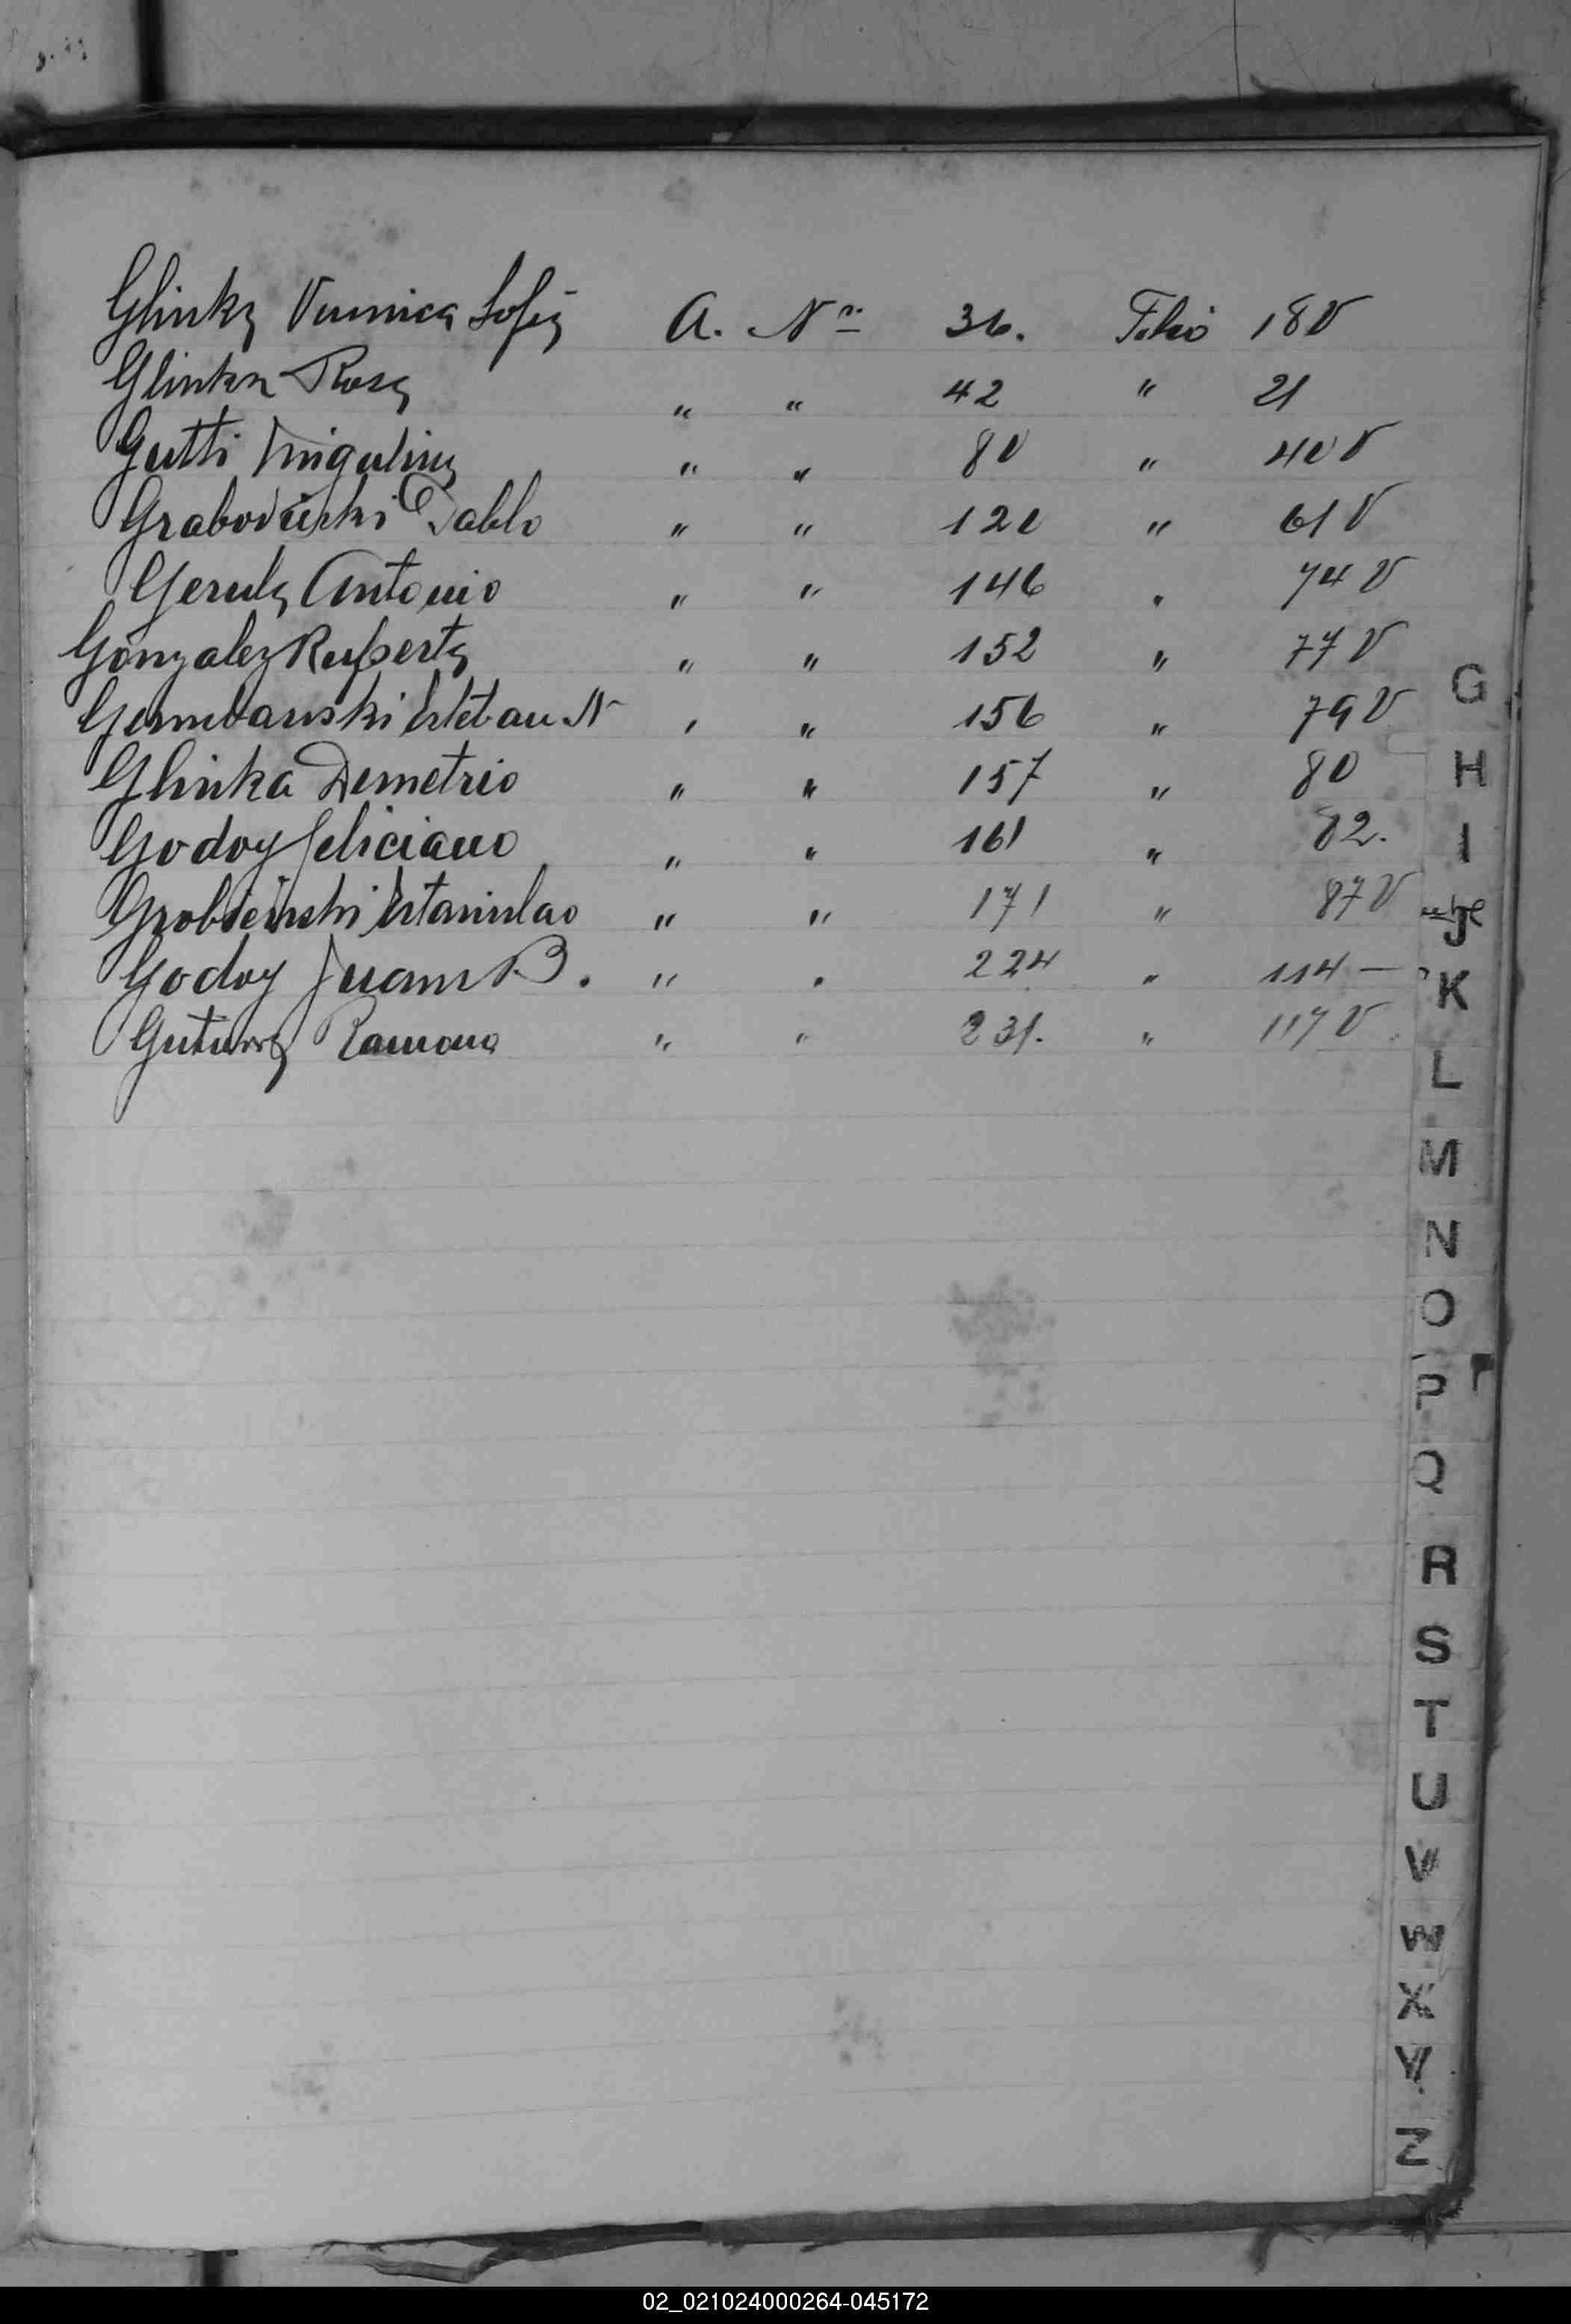 Glinka Veronica Sofia A. Nº 36. Folio 18V
Glinka Rosa " " 42 " 21
Gutti " " 80 " 40V
Pablo " " 120 " 61V
Antonio " " 146 " 74V
Gonzalez Ruperta " " 152 " 77V
Esteban N " " 156 " 79V
Glinka Demetrio " " 157 " 80
Godoy Feliciano " " 161 " 82.
Estanislao " " 171 " 87V
Godoy Juan B. " " 224 " 114 —
Ramona " " 231. " 117V
G
H
I
J
K
L
M
N
O
P
Q
R
S
T
U
V
W
X
Y
Z
02_021024000264-045172